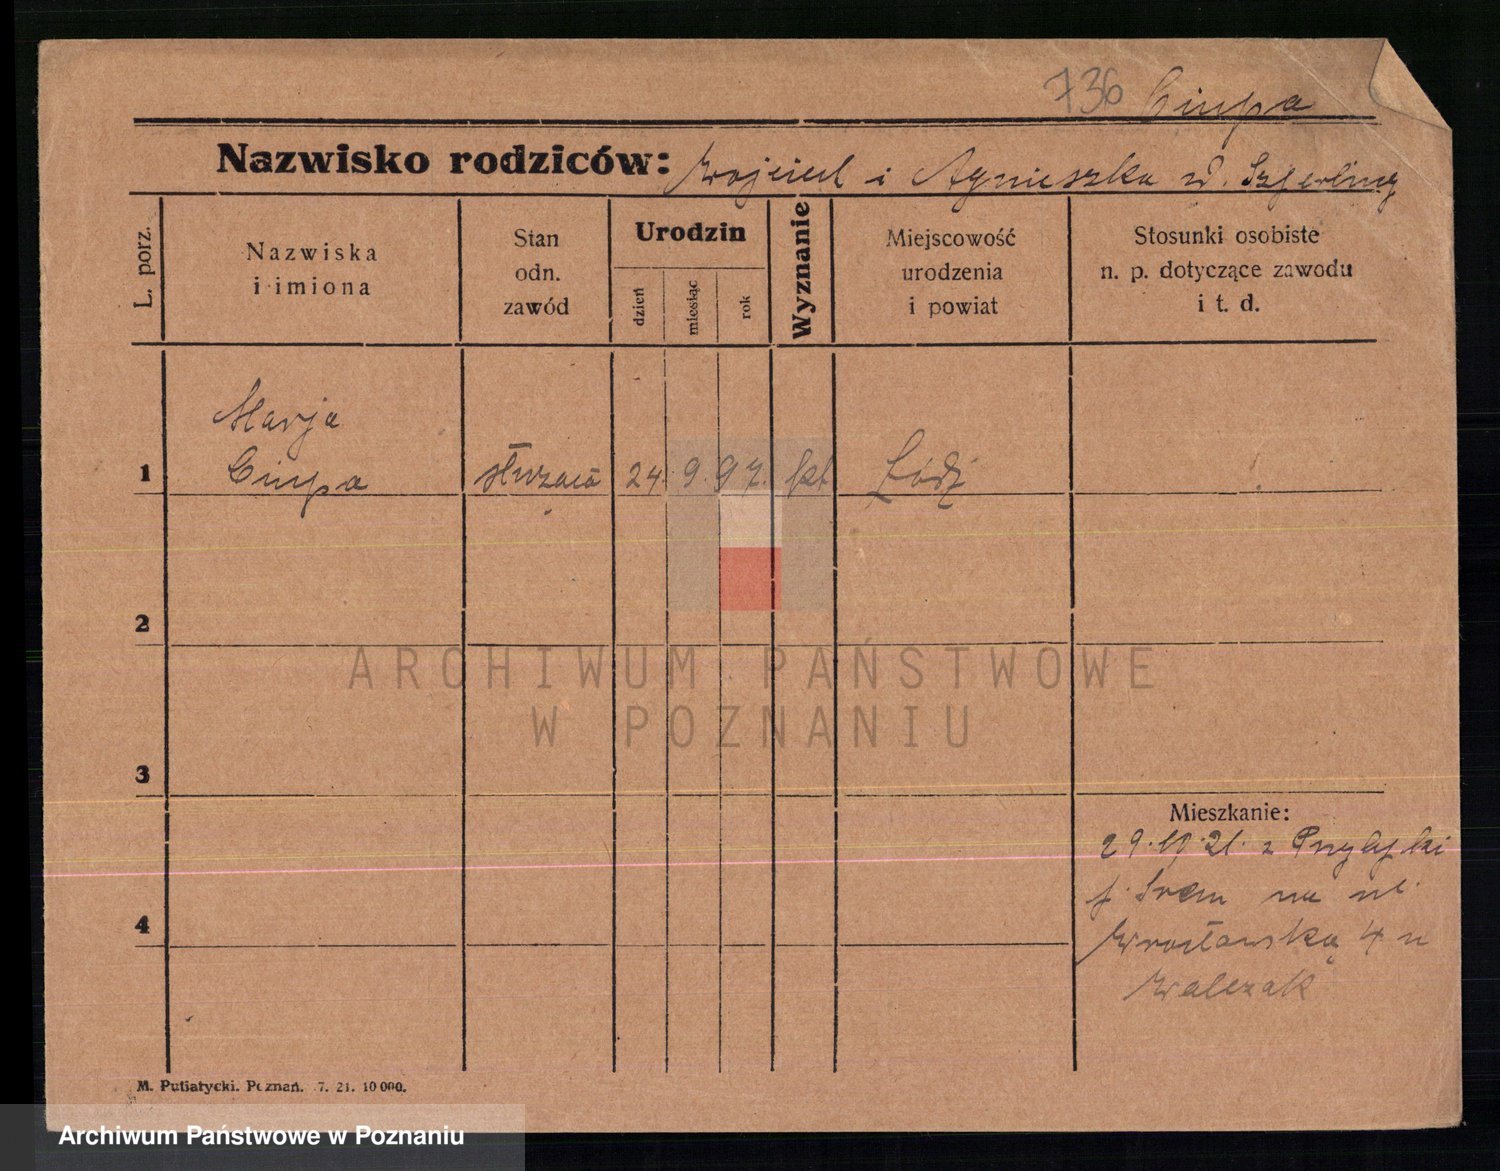 736 Ciupa
Nazwisko rodziców: Wojciech i Agnieszka z d.
L. porz.
Nazwiska
i imiona
Stan
odn.
zawód
Urodzin
dzień
miesiąc
rok
Wyznanie
Miejscowość
urodzenia
i powiat
Stosunki osobiste
n. p. dotyczące zawodu
i t. d.
Marja
1 Ciupa służąca 24. 9. 97. kat Łódź
2
ARCHIWUM PAŃSTWOWE
W POZNANIU
3
Mieszkanie:
29.10.21. z
p. Śrem na ul.
4 Wrocławską 4 u
Walczak
M. Putiatycki. Poznań. 7. 21. 10 000.
Archiwum Państwowe w Poznaniu